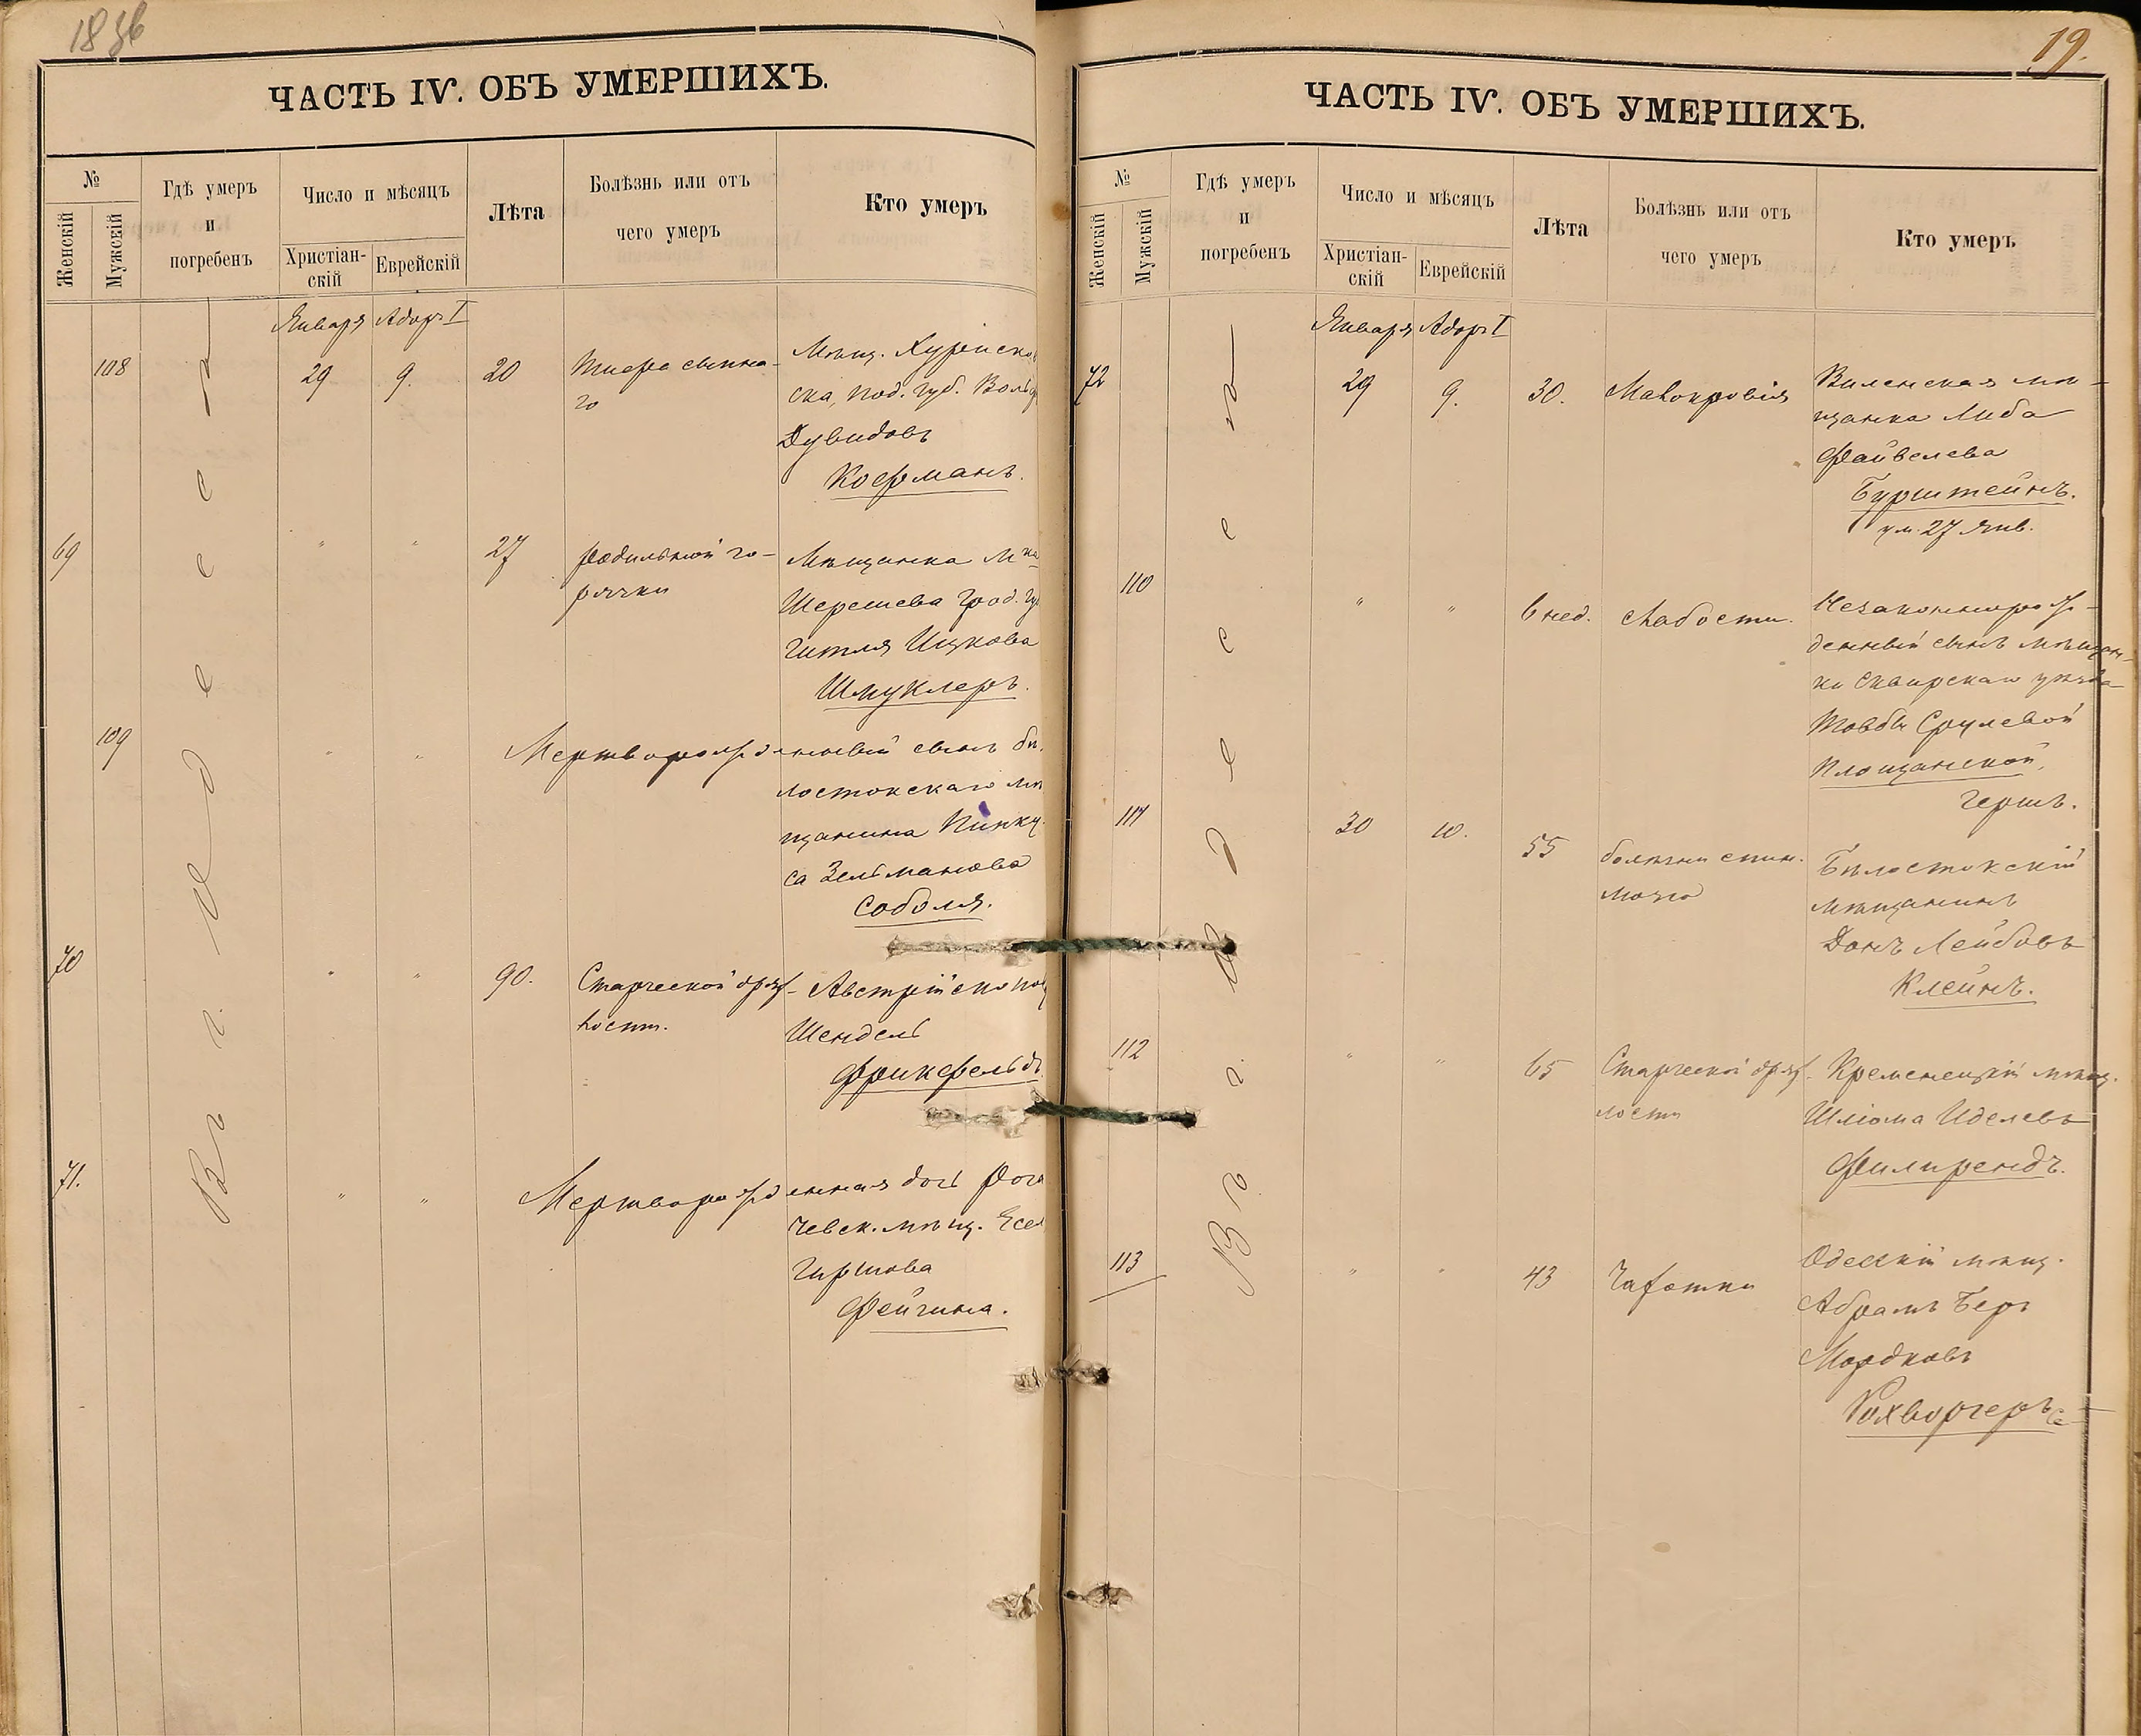 ЧАСТЬ IV. ОБЪ УМЕРШИХЪ.
№
Женскій
Мужскій
Гдѣ умеръ
и
погребенъ
Число и мѣсяцъ
Христіан-
скій
Еврейскій
Лѣта
Болѣзнь или отъ
чего умеръ
Кто умеръ
Въ г. Одессѣ
Января Адоръ I
108
29
9.
20
Тифа сыпна-
го
Мѣщ.
под. губ.
Дувидовъ
Кофманъ.
69
"
"
27
родильной го-
рячки
Мѣщанка м-ка
Шерешева Грод. гу
Гитля Ицкова
Шмуклеръ.
109
"
"
Мертворожденный сынъ бѣ-
лостокскаго мѣ
щанина Пинку-
са Зельманова
Соболя.
70
"
"
90.
Старческой дрях-
лости.
Австрійско под
Шендель
Фрикфельдъ
71.
"
"
Мертворожденная дочь Рога
чевск. мѣщ. Есел
Гиршова
Фейгина.
19.
ЧАСТЬ IV. ОБЪ УМЕРШИХЪ.
№
Женскій
Мужскій
Гдѣ умеръ
и
погребенъ
Число и мѣсяцъ
Христіан-
скій
Еврейскій
Лѣта
Болѣзнь или отъ
чего умеръ
Кто умеръ
Въ г. Одессѣ
Января Адоръ I
72
29
9.
30.
Малокровія
Виленская мѣ-
щанка Либа
Файвелева
Бурштейнъ.
ум. 27 Янв.
110
"
"
6 нед.
слабости.
Незаконнорож-
денный сынъ мѣщан-
ки Сквирскаго уѣзда
Товбы Срулевой
Площанской,
Гершъ.
111
30
10.
55
болѣзни спин.
мозга
Бѣлостокскій
мѣщанинъ
Донъ Лейбовъ
Клейнъ.
112
"
"
65
Старческой дрях-
лости
Кременецкій мѣщ.
Шліома Иделевъ
Филирендъ.
113
"
"
43
Чахотки
Одесскій мѣщ.
Абрамъ Беръ
Мордковъ
Рохворгеръ